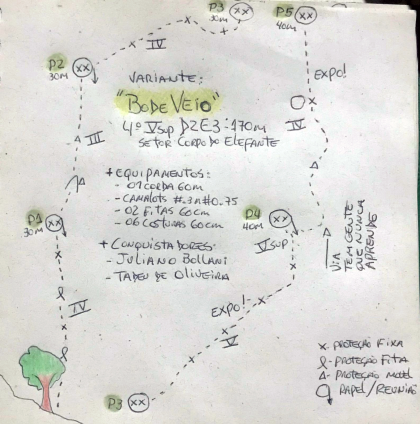 P3
30m
P5
40m
IV
P2
30m
EXPO!
VARIANTE:
"BODE VEIO"
4º Vsup D2E3 - 170m
SETOR CORPO DO ELEFANTE
IV
III
+ EQUIPAMENTOS:
- 01 CORDA 60m
- CAMALOTS #.3 a #0.75
- 02 FITAS 60cm
- 06 COSTURAS 60cm
P1
30m
P4
40m
Vsup
VIA
TEM GENTE
QUE NUNCA
APRENDE
+ CONQUISTADORES:
- JULIANO BOLLANI
- TADEU DE OLIVEIRA
IV
EXPO!
V
P3
x - PROTEÇÃO FIXA
- PROTEÇÃO FITA
Δ - PROTEÇÃO MÓVEL
RAPEL/REUNIÃO